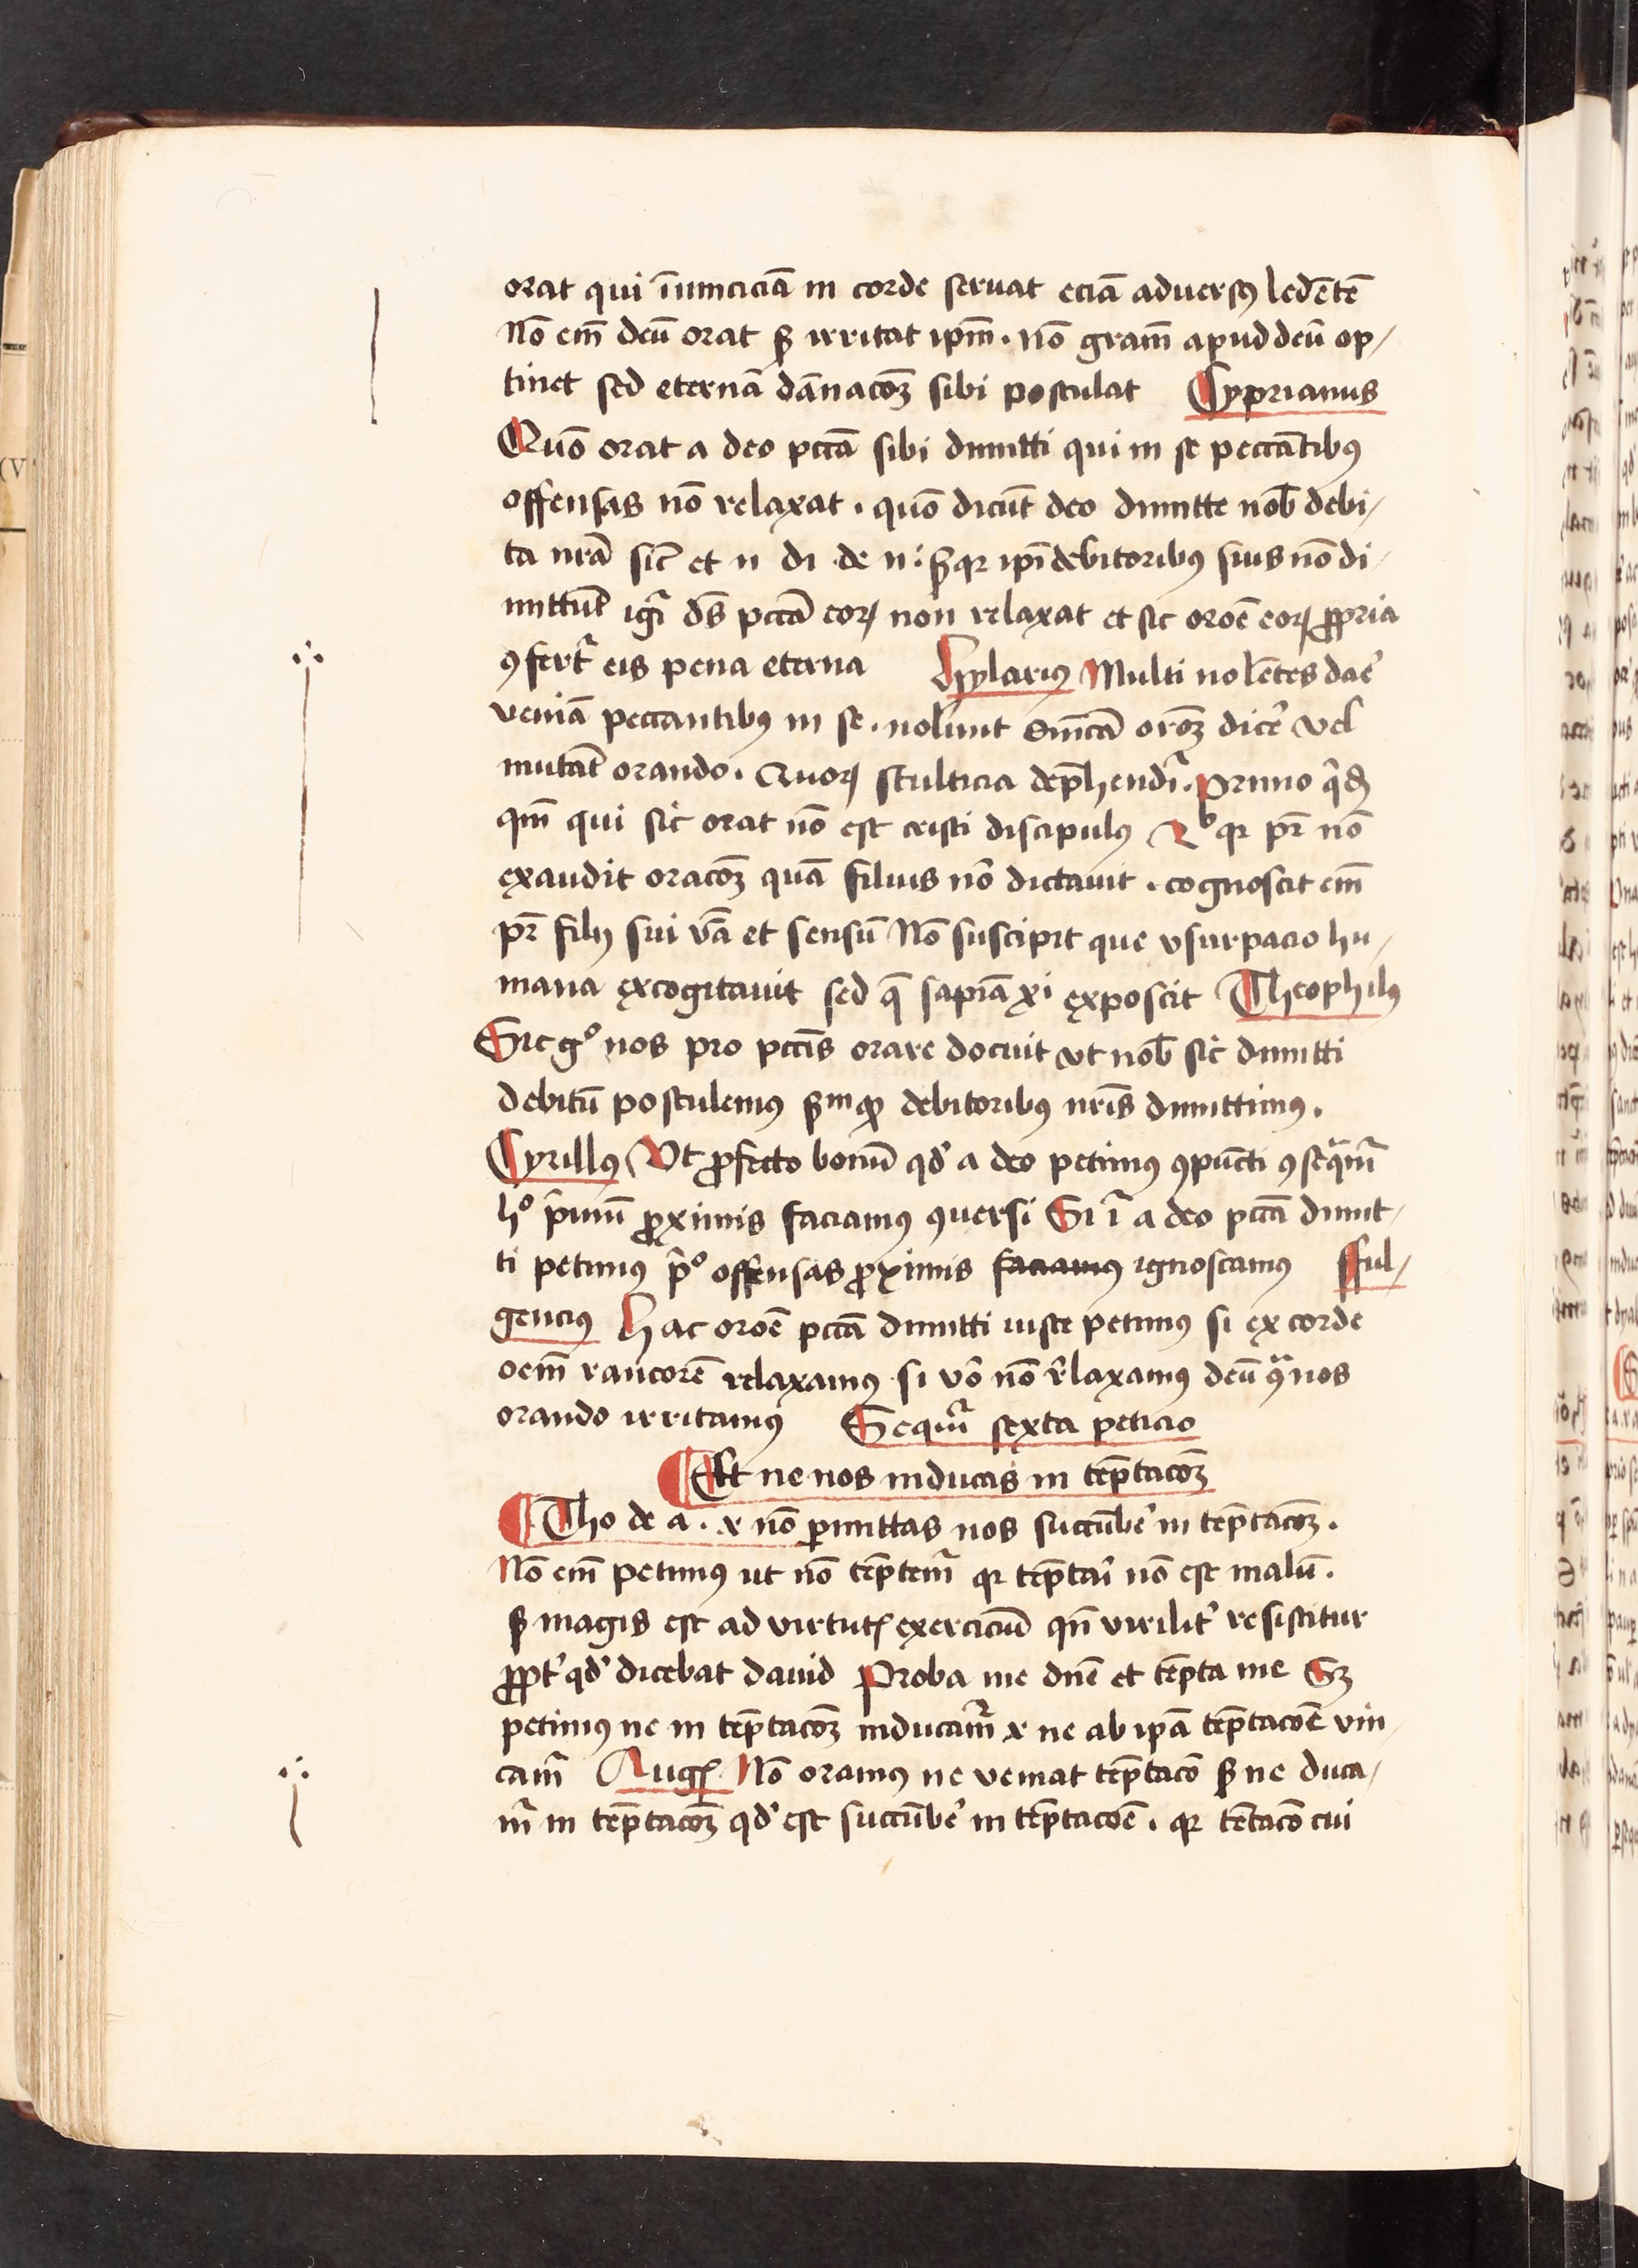 orat qui īimiciciā in corde seruat eciā aduersꝰ ledētē
Nō em̄ deū orat sꝫ irritat ip̄m . nō gram̄ apud deū op/
tinet sed eternā dānacōꝫ sibi postulat Cyprianus
Quō orat a deo pctā sibi dimitti qui in se peccātibꝰ
offensas nō relaxat . quō dicūt deo dimitte nob̄ debi/
ta nrā sic̄ et n di de n : sꝫ qꝛ ip̄i debitoribꝰ suis nō di/
mittūt igr̄ ds̄ pctā eoꝝ non relaxat et sic oroē eoꝝ ꝓpria
ꝯfert᷑ eis pena eterna Hylariꝰ Multi nolētes dar̄e
veniā peccantibꝰ in se . nolunt dn̄icā oroꝫ dicē vel
mutāt orando . Quoꝝ stulticia dep̄hendit᷑ . Primo qd̄
qm̄ qui sic̄ orat nō est cristi discipulꝰ 2º qꝛ pr̄ nō
exaudit oracōꝫ quā filius nō dictauit . cognoscit em̄
pr̄ filij sui vā et sensū Nō suscipit que vsurpacio hu/
mana excogitauit sed q̄ sapiā xi exposcit Theophilꝰ
Sic gº nos pro pctis̄ orare docuit vt nob̄ sic̄ dimitti
debitū postulemꝰ sm̄ qꝫ debitoribꝰ nrīs dimittimꝰ .
Cyrillꝰ Vt ꝓfecto bonū qd̓ a deo petimꝰ ꝯpūcti ꝯseqm̄
hº p̄mū ꝓximis faciamꝰ ꝯuersi Si iḡ a deo pctā dimit/
ti petimꝰ p̓º offensas ꝓximis faciamꝰ ignoscamꝰ ffful/
genciꝰ Hac oroē pctā dimitti iuste petimꝰ si ex corde
oem̄ rancorē relaxamꝰ si vō nō r̓laxamꝰ deū ꝯᵃ nos
orando irritamꝰ Sequit᷑ sexta peticio
Et ne nos inducas in tēptacōꝫ
Tho de a . x nō ꝑmittas nos succūbē in tēptacōꝫ .
Nō em̄ petimꝰ ut nō tēptem᷑ qꝛ tēptari nō est malū .
sꝫ magis est ad virtutꝭ exerciciū qn̄ virilit̓ resistitur
ꝓpt̓ qd̓ dicebat dauid Proba me dn̄e et tēpta me Sꝫ
petimꝰ ne in tēptacōꝫ inducam᷑ x ne ab ip̄a tēptacōē vin/
cam᷑ Augꝭ Nō oramꝰ ne veniat tēptacō sꝫ ne duca/
m᷑ in tēptacōꝫ qd̓ est succūbē in tēptacōē . qꝛ tētacō cui